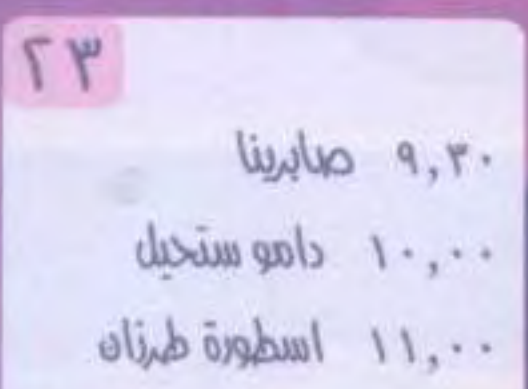 ٢٣
٩,٣٠ صابرينا
١٠,٠٠ دامو ستحيل
١١,٠٠ اسطورة طرزان